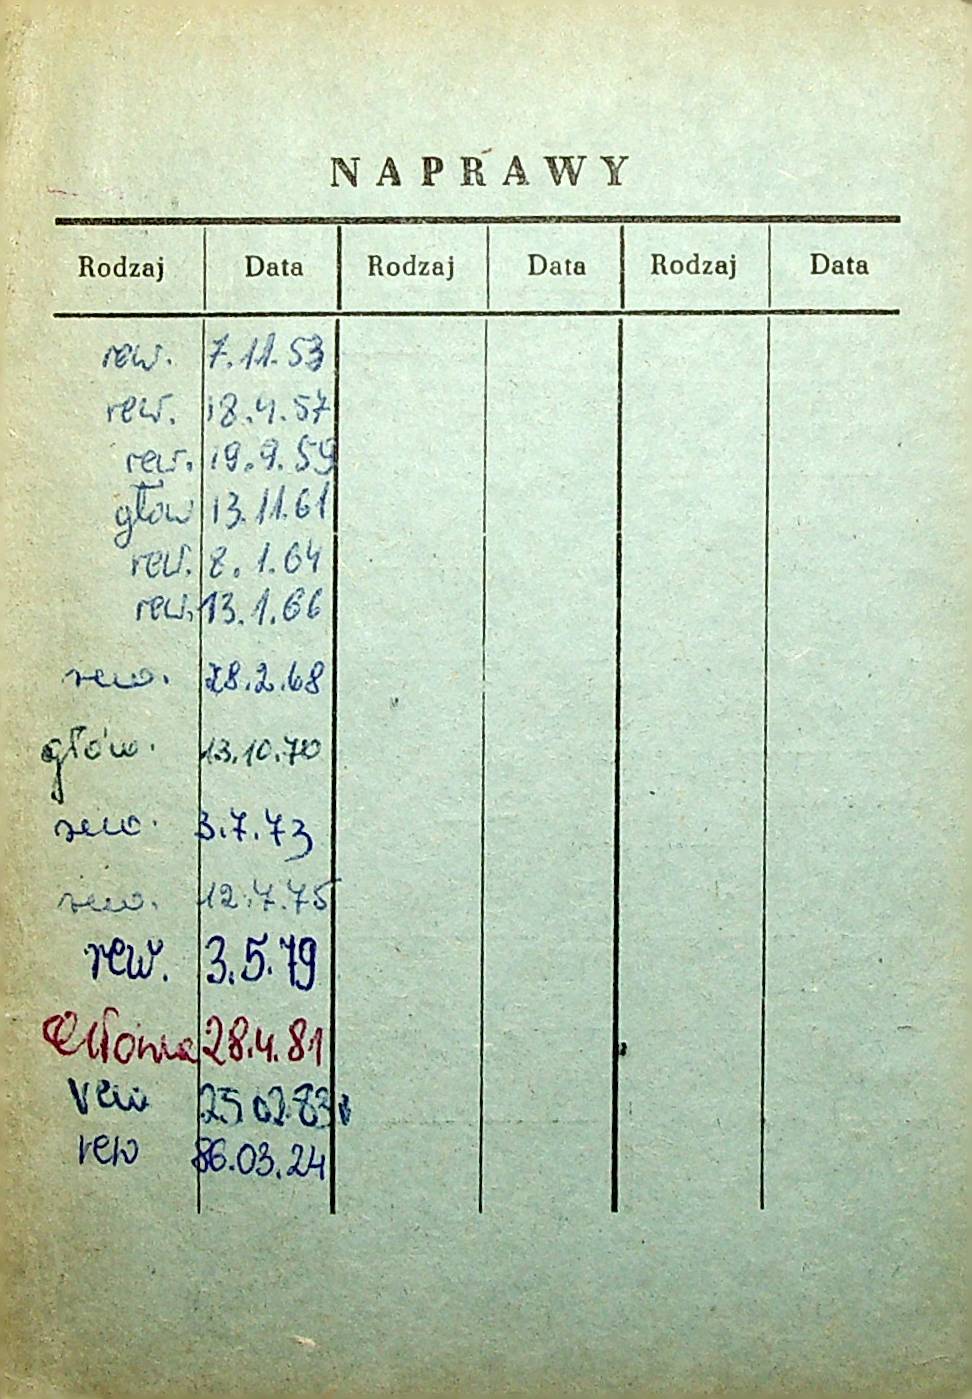 NAPRAWY
Rodzaj Data Rodzaj Data Rodzaj Data
rew. 7.11.53
rew. 18.4.57
rew. 19.9.59
głow 13.11.61
rew. 8.1.64
rew. 13.1.66
rew. 28.2.68
głów. 13.10.70
rew. 3.7.73
rew. 12.7.75
rew. 3.5.79
Główna 28.4.81
rew 25 02 83
rew 86.03.24